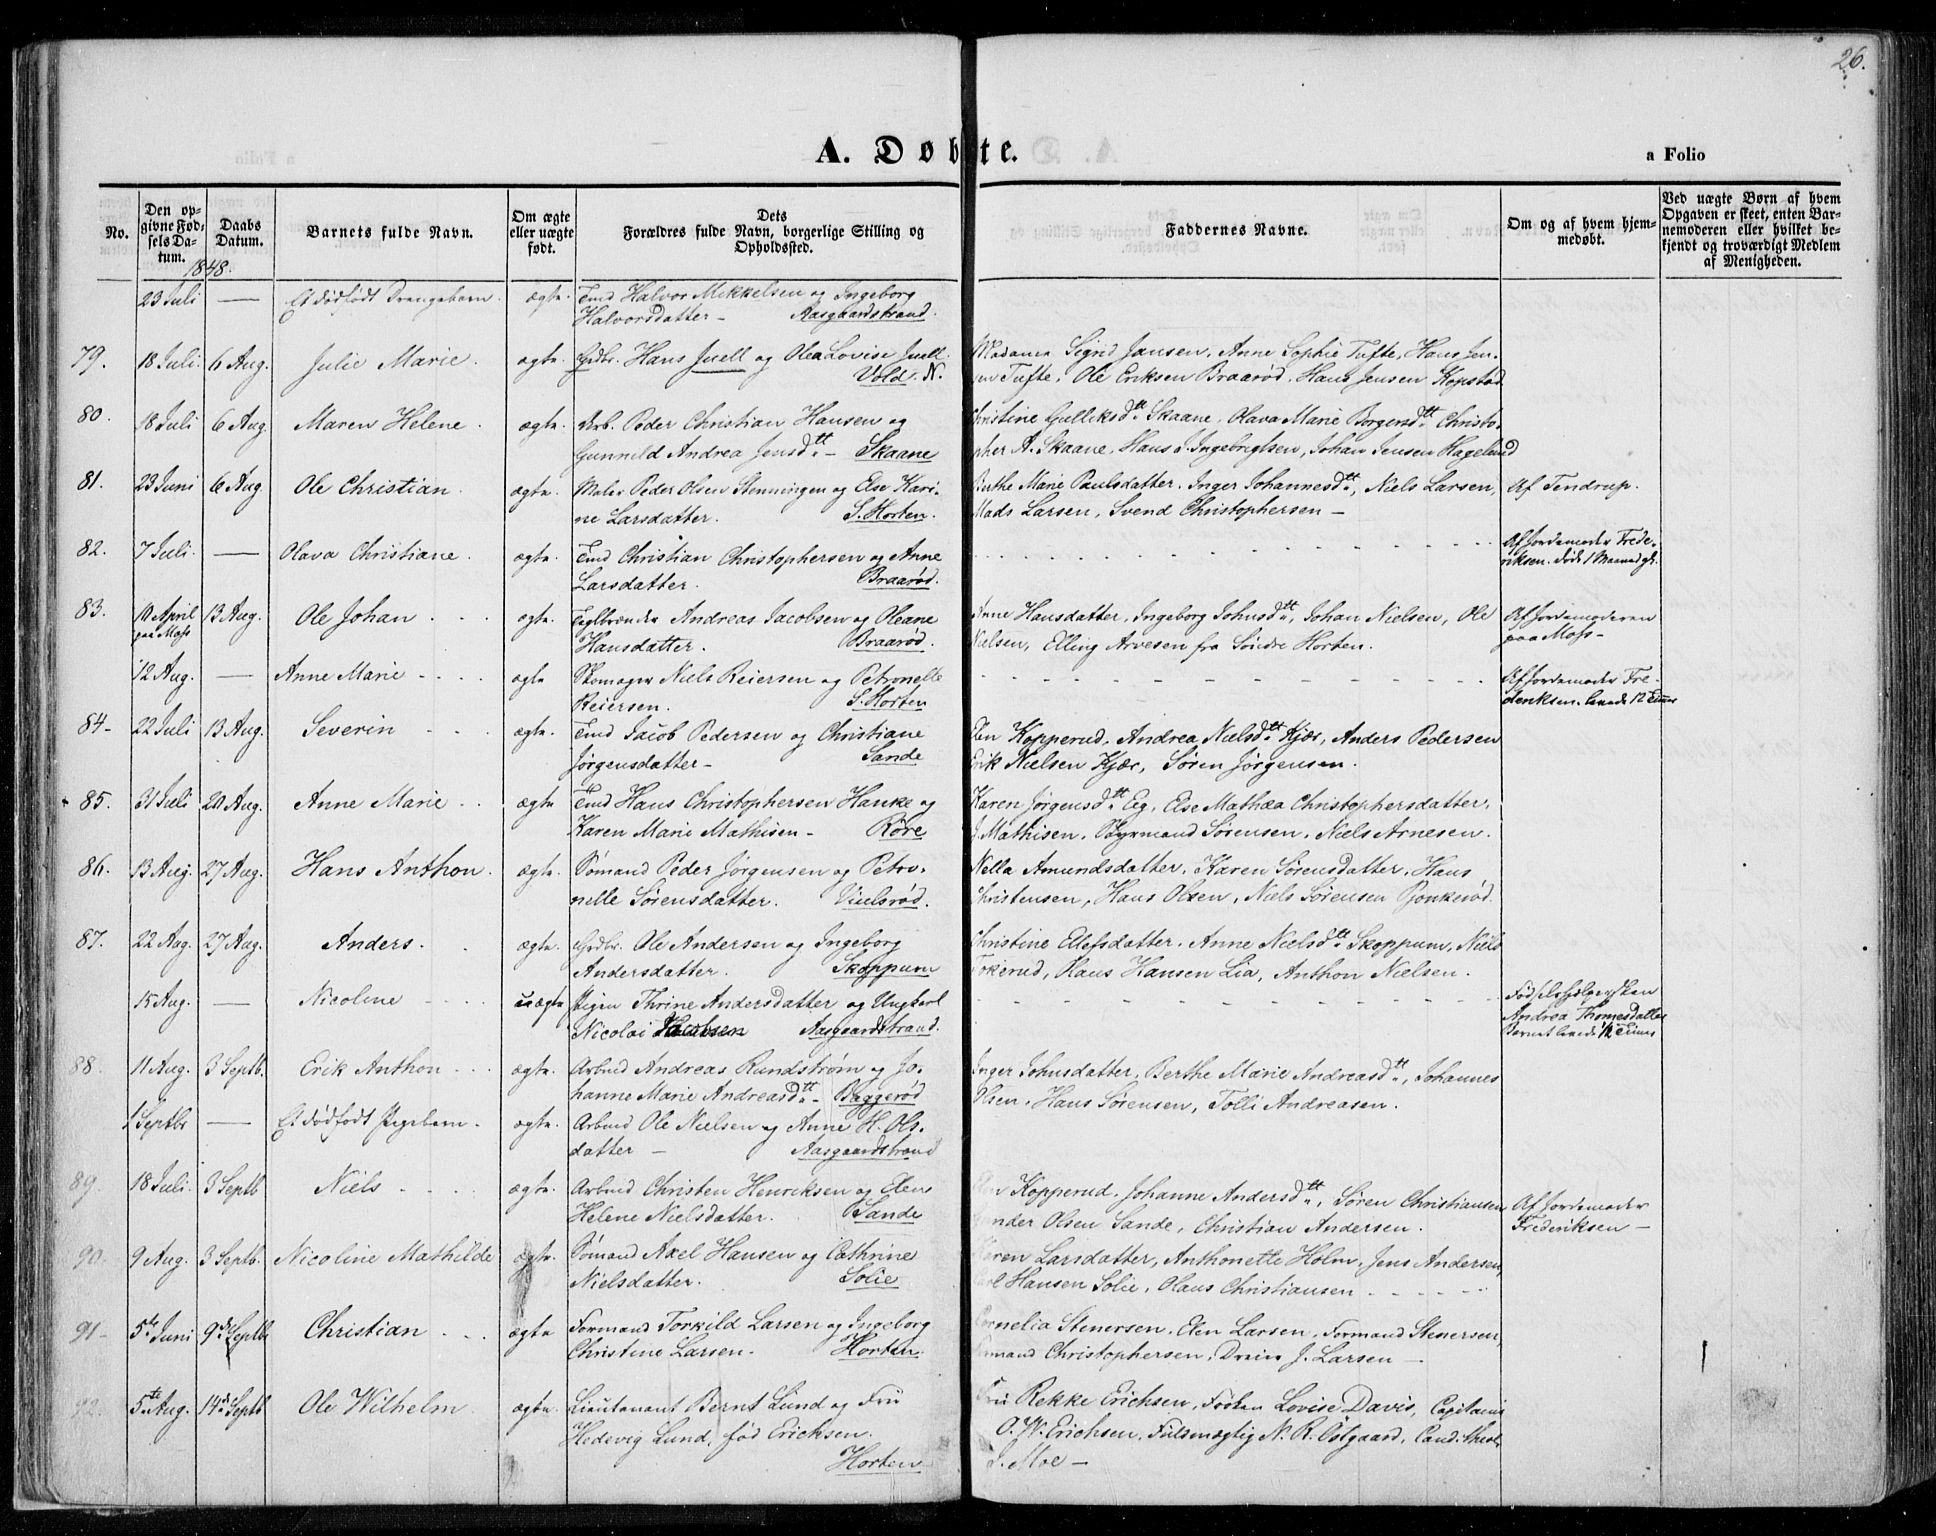 26.
A. Døbte.
a Folio
No.
Den op-
givne Fød-
sels Da-
tum.
Daabs
Datum.
Barnets fulde Navn.
Om ægte
eller uægte
født.
Dets
Forældres fulde Navn, borgerlige Stilling og
Opholdssted.
Faddernes Navne.
Om og af hvem hjem-
medøbt.
Ved uægte Børn af hvem
Opgaven er skeet, enten Bar-
nemoderen eller hvilket be-
kjendt og troværdigt Medlem
af Menigheden.
1848.
23 Juli — Et dødfødt Drengebarn. ægte. Tmd Halvor Mikkelsen og Ingeborg
Halvorsdatter - Aasgaardstrand.
79. 18 Juli. 6 Aug. Julie Marie. ægte. Grdbr. Hans Juell og Olea Lovise Juell. Madamen Sigrid Jansen, Anne Sophie Tufte, Hans Jen-
Vold. N. sen Tufte, Ole Eriksen Braarød, Hans Jensen Kopstad
80. 18 Juli 6 Aug Maren Helene. ægte. Arb. Peder Christian Hansen og Christine Gulliksdtt. Skaane, Olava Marie Borgersdtt. Christo-
Gunnild Andrea Jensdtt. - Skaane pher A. Skaane, Hans J. Ingebrigtsen, Johan Jensen Hagelund
81. 23 Juni 6 Aug. Ole Christian. ægte. Maler Peder Olsen Stenningen og Else Kari- Berthe Marie Paulsdatter. Inger Johannesdtt., Niels Larsen, Af Tendrup.
ne Larsdatter. S. Horten. Mads Larsen, Svend Christophersen -
82. 7 Juli. — Olava Christiane. ægte. Tmd Christian Christophersen og Anne Af Jordemoder Frede-
Larsdatter. Braarød. riksen. døde 1 Maaned gl.
83. 10 April 13 Aug. Ole Johan ægte. Teglbrænder Andreas Jacobsen og Oleane Anne Hansdatter, Ingeborg Johnsdtt., Johan Nielsen, Ole Af Jordemoderen
paa Moss Hansdatter. Braarød. Nielsen, Elling Arvesen fra Søndre Horten. paa Moss-
12 Aug. — Anne Marie ægte Skomager Niels Reiersen og Petronelle Af Jordemoder Fre-
Reiersen. S. Horten deriksen. levede 12 Timer
84- 22 Juli 13 Aug. Severin ægte. Tmd Jacob Pedersen og Christiane Elen Kopperud, Andrea Nielsdtt. Kjær, Anders Pedersen
Jørgensdatter - Sande Erik Nielsen Kjær, Søren Jørgensen.
85. 31 Juli 20 Aug. Anne Marie ægte. Tmd Hans Christophersen Hanke og Karen Jørgensdtt. Eg, Else Mathæa Christophersdatter,
Karen Marie Mathisen - Røre J. Mathisen, Styrmand Sørensen, Niels Arnesen.
86. 13 Aug. 27 Aug. Hans Anthon. ægte. Sømand Peder Jørgensen og Petro- Nella Amundsdatter. Karen Sørensdatter. Hans
nelle Sørensdatter. Viulsrød. Christensen, Hans Olsen, Niels Sørensen Bjonkerød.
87. 22 Aug. 27 Aug. Anders. ægte. Grdbr. Ole Andersen og Ingeborg Christine Ellefsdatter. Anne Nielsdtt. Skoppum, Niels
Andersdatter. Skoppum Fokerud, Claus Hansen Lia, Anthon Nielsen.
15 Aug. — Nicoline uægte Pigen Thrine Andersdatter og Ungkarl Fødselshjelpersken
Nicolai Jacobsen Aasgaardstrand. Andrea Thomesdatter
Barnet levede 12 Timer
88. 11 Aug. 3 Septb. Erik Anthon ægte. Arbmd Andreas Rundstrøm og Jo- Inger Johnsdatter, Berthe Marie Andreasdtt., Johannes
hanne Marie Andreasdtt. - Baggerød Olsen. Hans Sørensen, Tolli Andreasen.
1 Septbr — Et dødfødt Pigebarn. ægte. Arbmd Ole Nielsen og Anne H. Ols-
datter - Aasgaardstrand
89. 18 Juli. 3 Septb Niels ægte. Arbmd Christen Henriksen og Elen Elen Kopperud. Johanne Andersdtt., Søren Christiansen Af Jordemoder
Helene Nielsdatter. Sande Olsen Sande, Christian Andersen. Frederiksen -
90. 9 Aug. 3 Septb. Nicoline Mathilde ægte. Sømand Axel Hansen og Cathrine Karen Larsdatter, Anthonette Holm, Jens Andersen,
Nielsdatter. Solie Hansen Solie, Olaus Christiansen
91- 5te Juni 9de Septbr Christian ægte Formand Torkild Larsen og Ingeborg Cornelia Stenersen. Elen Larsen, Formand Stenersen,
Christine Larsen. Horten. Formand Christophersen, Dreier J. Larsen -
92. 5te Aug. 14de Septb Ole Wilhelm ægte. Lieutenant Bernt Lund og Fru Fru Rekke Erichsen, Frøken Lovise Davis, Capitain
Hedevig Lund, fød Erichsen. O. W. Erichsen, Fuldmægtig N. R. Østgaard, Cand. theol.
Horten Moe -